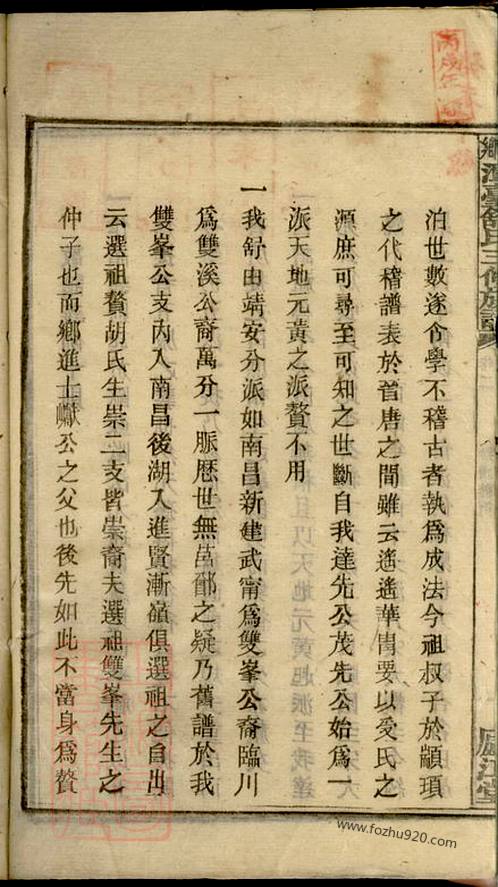 泊世數遂令學不稽古者執爲成法今祖叔子於顓頊
之代稽譜表於首唐之間雖云遙遙華胄要以受氏之
源庶可尋至可知之世斷自我達先公茂先公始爲一
派天地元黃之派贅不用
一我舒由靖安分派如南昌新建武甯爲雙峯公裔臨川
爲雙溪公裔萬分一脈歷世無莒鄫之疑乃舊譜於我
雙峯公支內入南昌後湖入進賢漸嶺俱選祖之自出
云選祖贅胡氏生崇二支皆崇裔夫選祖雙峯先生之
仲子也而鄉進士巘公之父也後先如此不當身爲贅
氏三修族譜
廬江堂
丙戌年
www.fozhu920.com